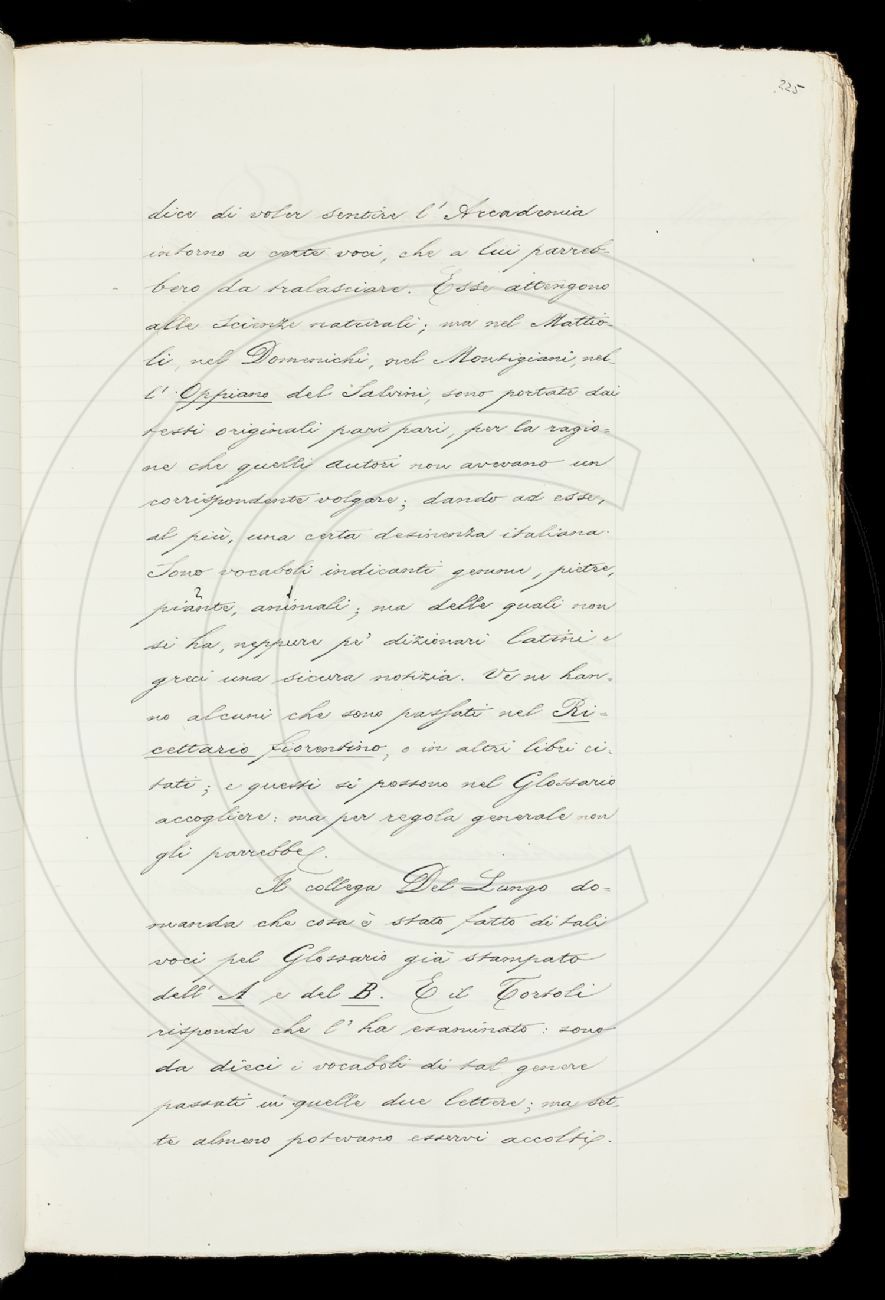 225
dice di voler sentire l'Accademia
intorno a certe voci, che a lui parreb-
bero da tralasciare. Esse attengono
alle Scienze naturali; ma nel Mattio-
li, nel Domenichi, nel Montigiani, nel
l'Oppiano del Salvini, sono portate dai
testi originali pari pari, per la ragio-
ne che quelli autori non avevano un
corrispondente volgare; dando ad esse,
al più, una certa desinenza italiana.
Sono vocaboli indicanti gemme, pietre,
piante, animali; ma delle quali non
si ha, neppure pe' dizionari latini e
greci una sicura notizia. Ve ne han-
no alcuni che sono passati nel Ri-
cettario fiorentino, o in altri libri ci-
tati; e questi si possono nel Glossario
accogliere: ma per regola generale non
gli parrebbe.
Il collega Del Lungo do-
manda che cosa è stato fatto di tali
voci pel Glossario già stampato
dell'A e del B. E il Tortoli
risponde che l'ha esaminato: sono
da dieci i vocaboli di tal genere
passati in quelle due lettere; ma set-
te almeno potevano esservi accolti.